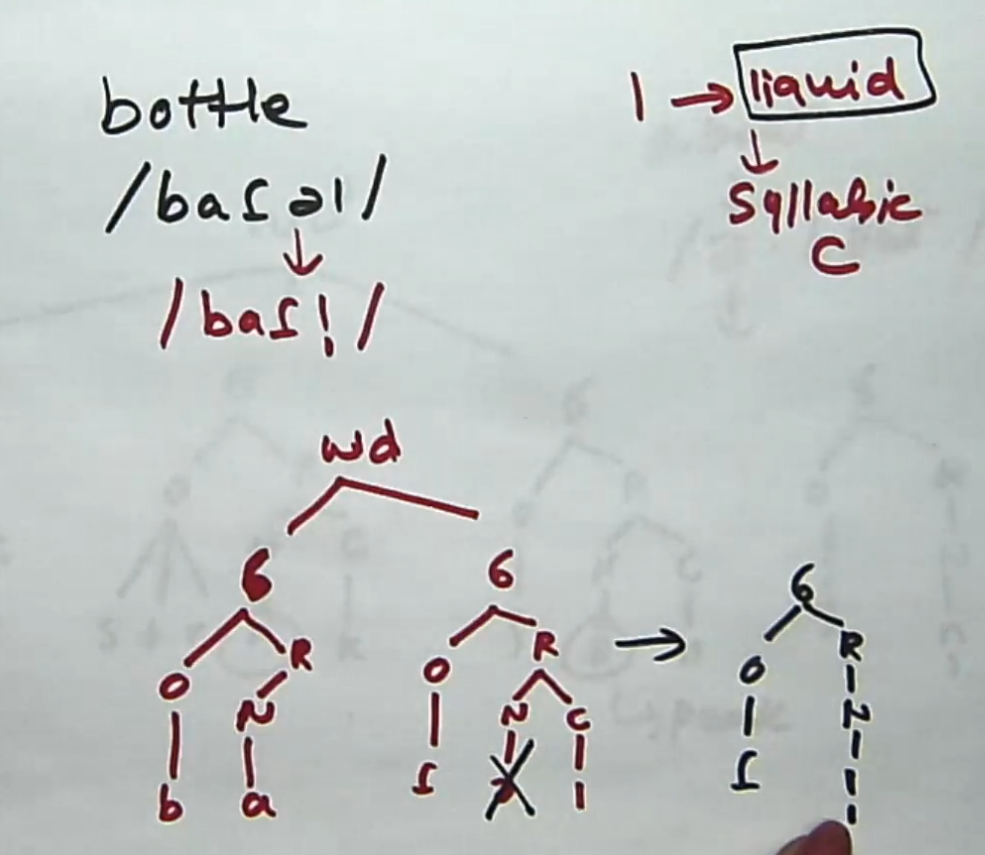 bottle
/baɾəl/
↓
/baɾl̩/
l → liquid
↓
Syllabic
C
wd
σ σ → σ
O R O R O R
N N C N
b a ɾ ə l ɾ l̩